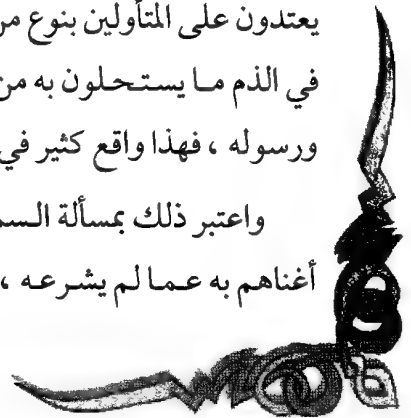 يعتدون على المتأولين بنوع من
في الذم مـا يستـحلون به من
ورسوله ، فهذا واقع كثير في
واعتبر ذلك بمسألة الـسم
أغناهم به عـمـا لم يشـرعـه ،